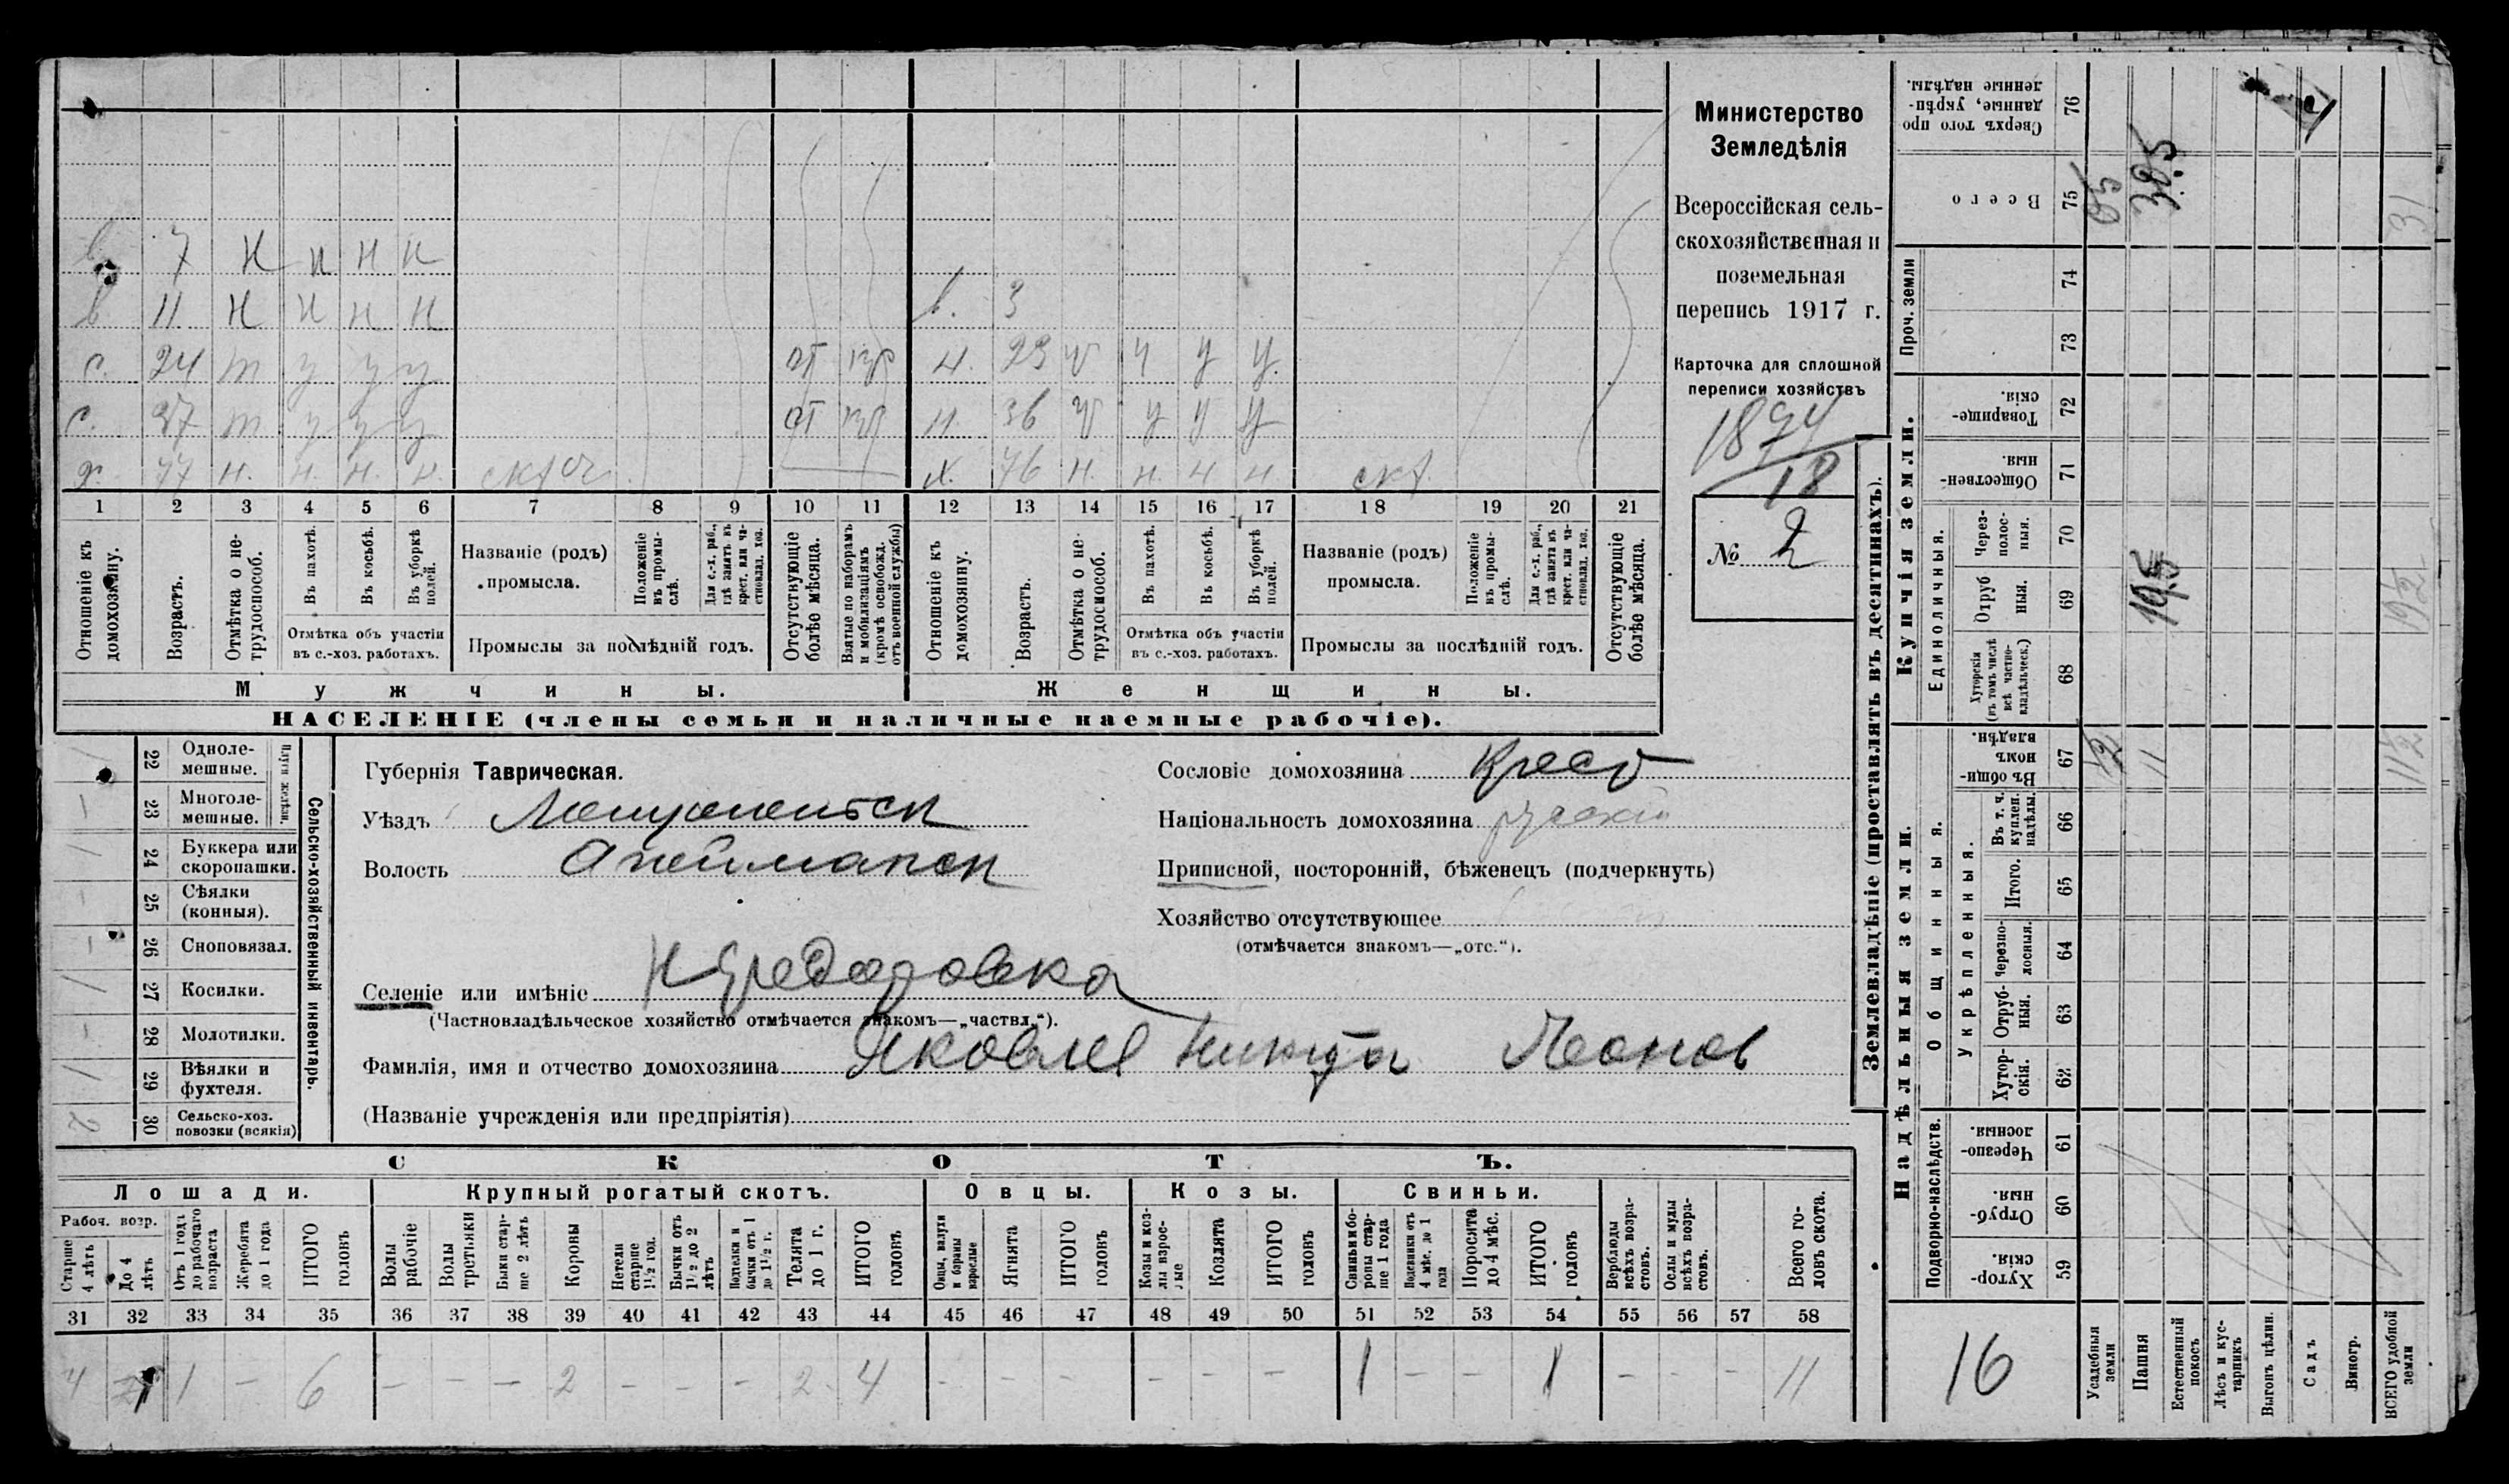 Министерство
Земледѣлія
Всероссійская сель-
скохозяйственная и
поземельная
перепись 1917 г.
Карточка для сплошной
переписи хозяйствъ
1874
18
№ 2
в 7 н н н н
в 11 н н н н в. 3
с. 24 т у у у от н. 23 у у у
с. 37 т у у у от н. 36 у у у
х. 77 н. н. н. н. х. 76 н. н. н н.
1 2 3 4 5 6 7 8 9 10 11 12 13 14 15 16 17 18 19 20 21
Отношеніе къ домохозяину.
Возрастъ.
Отмѣтка о не-трудоспособ.
Въ пахотѣ.
Въ косьбѣ.
Въ уборкѣ полей.
Отмѣтка объ участіи
въ с.-хоз. работахъ.
Названіе (родъ)
промысла.
Положеніе въ промы-слѣ.
Для с.-х. раб., гдѣ занятъ въ крест. или ча-стновлад. хоз.
Промыслы за послѣдній годъ.
Отсутствующіе болѣе мѣсяца.
Взятые по наборамъ и мобилизаціямъ (кромѣ освобожд. отъ военной службы)
Отношеніе къ домохозяину.
Возрастъ.
Отмѣтка о не-трудоспособ.
Въ пахотѣ.
Въ косьбѣ.
Въ уборкѣ полей.
Отмѣтка объ участіи
въ с.-хоз. работахъ.
Названіе (родъ)
промысла.
Положеніе въ промы-слѣ.
Для с.-х. раб., гдѣ занята въ крест. или ча-стновлад. хоз.
Промыслы за послѣдній годъ.
Отсутствующіе болѣе мѣсяца.
Мужчины. Женщины.
НАСЕЛЕНІЕ (члены семьи и наличные наемные рабочіе).
Сельско-хозяйственный инвентарь.
Плуги желѣзн.
22 Одноле-мешные.
23 Многоле-мешные.
24 Буккера или скоропашки.
25 Сѣялки (конныя).
26 Сноповязал.
27 Косилки.
28 Молотилки.
29 Вѣялки и фухтеля.
30 Сельско-хоз. повозки (всякія) 2
Губернія Таврическая.
Уѣздъ
Волость
Селеніе или имѣніе
(Частновладѣльческое хозяйство отмѣчается знакомъ—„частвл.“).
Фамилія, имя и отчество домохозяина Яковлев Никита Леонов
(Названіе учрежденія или предпріятія)
Сословіе домохозяина Крест
Національность домохозяина русскій
Приписной, посторонній, бѣженецъ (подчеркнуть)
Хозяйство отсутствующее
(отмѣчается знакомъ—„отс.“).
СКОТЪ.
Лошади. Крупный рогатый скотъ. Овцы. Козы. Свиньи.
Рабоч. возр.
Старше 4 лѣтъ
До 4 лѣтъ
Отъ 1 года до рабочаго возраста
Жеребята до 1 года
ИТОГО головъ
Волы рабочіе
Волы третьяки
Быки стар-ше 2 лѣтъ
Коровы
Нетели старше 1 1/2 год.
Бычки отъ 1 1/2 до 2 лѣтъ
Нетелки и бычки отъ 1 до 1 1/2 г.
Телята до 1 г.
ИТОГО головъ
Овцы, валухи и бараны взрослые
Ягнята
ИТОГО головъ
Козы и коз-лы взрос-лые
Козлята
ИТОГО головъ
Свиньи и бо-ровы стар-ше 1 года
Подсвинки отъ 4 мѣс. до 1 года
Поросята до 4 мѣс.
ИТОГО головъ
Верблюды всѣхъ возра-стовъ.
Ослы и мулы всѣхъ возра-стовъ.
Всего го-ловъ скота.
31 32 33 34 35 36 37 38 39 40 41 42 43 44 45 46 47 48 49 50 51 52 53 54 55 56 57 58
4 1 1 – 6 – – – 2 – – – 2 4 – – – – – – 1 – – 1 – – – 11
Землевладѣніе (проставлять въ десятинахъ).
Купчія земли.
Надѣльныя земли.
Сверхъ того про-данные, укрѣп-ленные надѣлы. 76
Всего 75 38.5 31
Проч. земли 74 73
Товарище-скія. 72
Обществен-ныя. 71
Единоличныя.
Через-полос-ныя. 70
Отруб-ныя. 69 19.5 19 1/2
Хуторскія (въ томъ числѣ всѣ частно-владѣльческ.) 68
Общинныя.
Въ общин-номъ владѣн. 67 1/2 11 11 1/2
Укрѣпленныя.
Въ т. ч. куплен. надѣлы. 66
Итого. 65
Черезпо-лосныя. 64
Отруб-ныя. 63
Хутор-скія. 62
Подворно-наслѣдств.
Черезпо-лосныя. 61
Отруб-ныя. 60
Хутор-скія. 59
16
Усадебныя земли
Пашня
Естественный покосъ
Лѣсъ и кус-тарникъ
Выгонъ цѣлин.
Садъ
Виногр.
ВСЕГО удобной земли